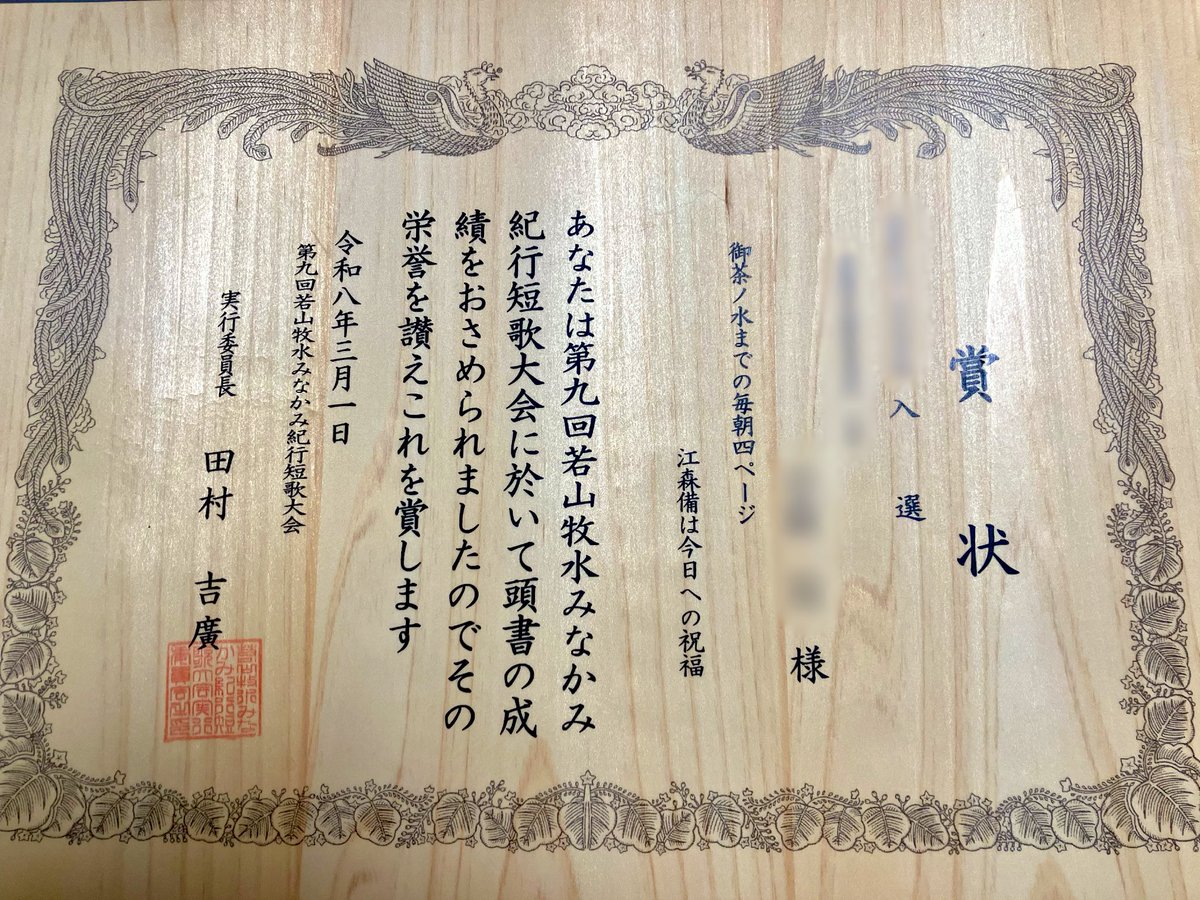 賞状
入選
様
御茶ノ水までの毎朝四ページ
江森備は今日への祝福
あなたは第九回若山牧水みなかみ
紀行短歌大会に於いて頭書の成
績をおさめられましたのでその
栄誉を讃えこれを賞します
令和八年三月一日
第九回若山牧水みなかみ紀行短歌大会
実行委員長 田村吉廣